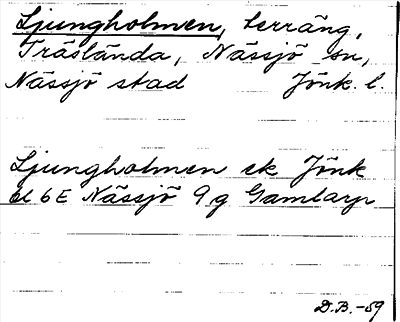 Ljungholmen, terräng,
Träslända, Nässjö sn,
Nässjö stad Jönk. l.
Ljungholmen ek Jönk
bl 6E Nässjö 9 g Gamlarp
D.B.-59